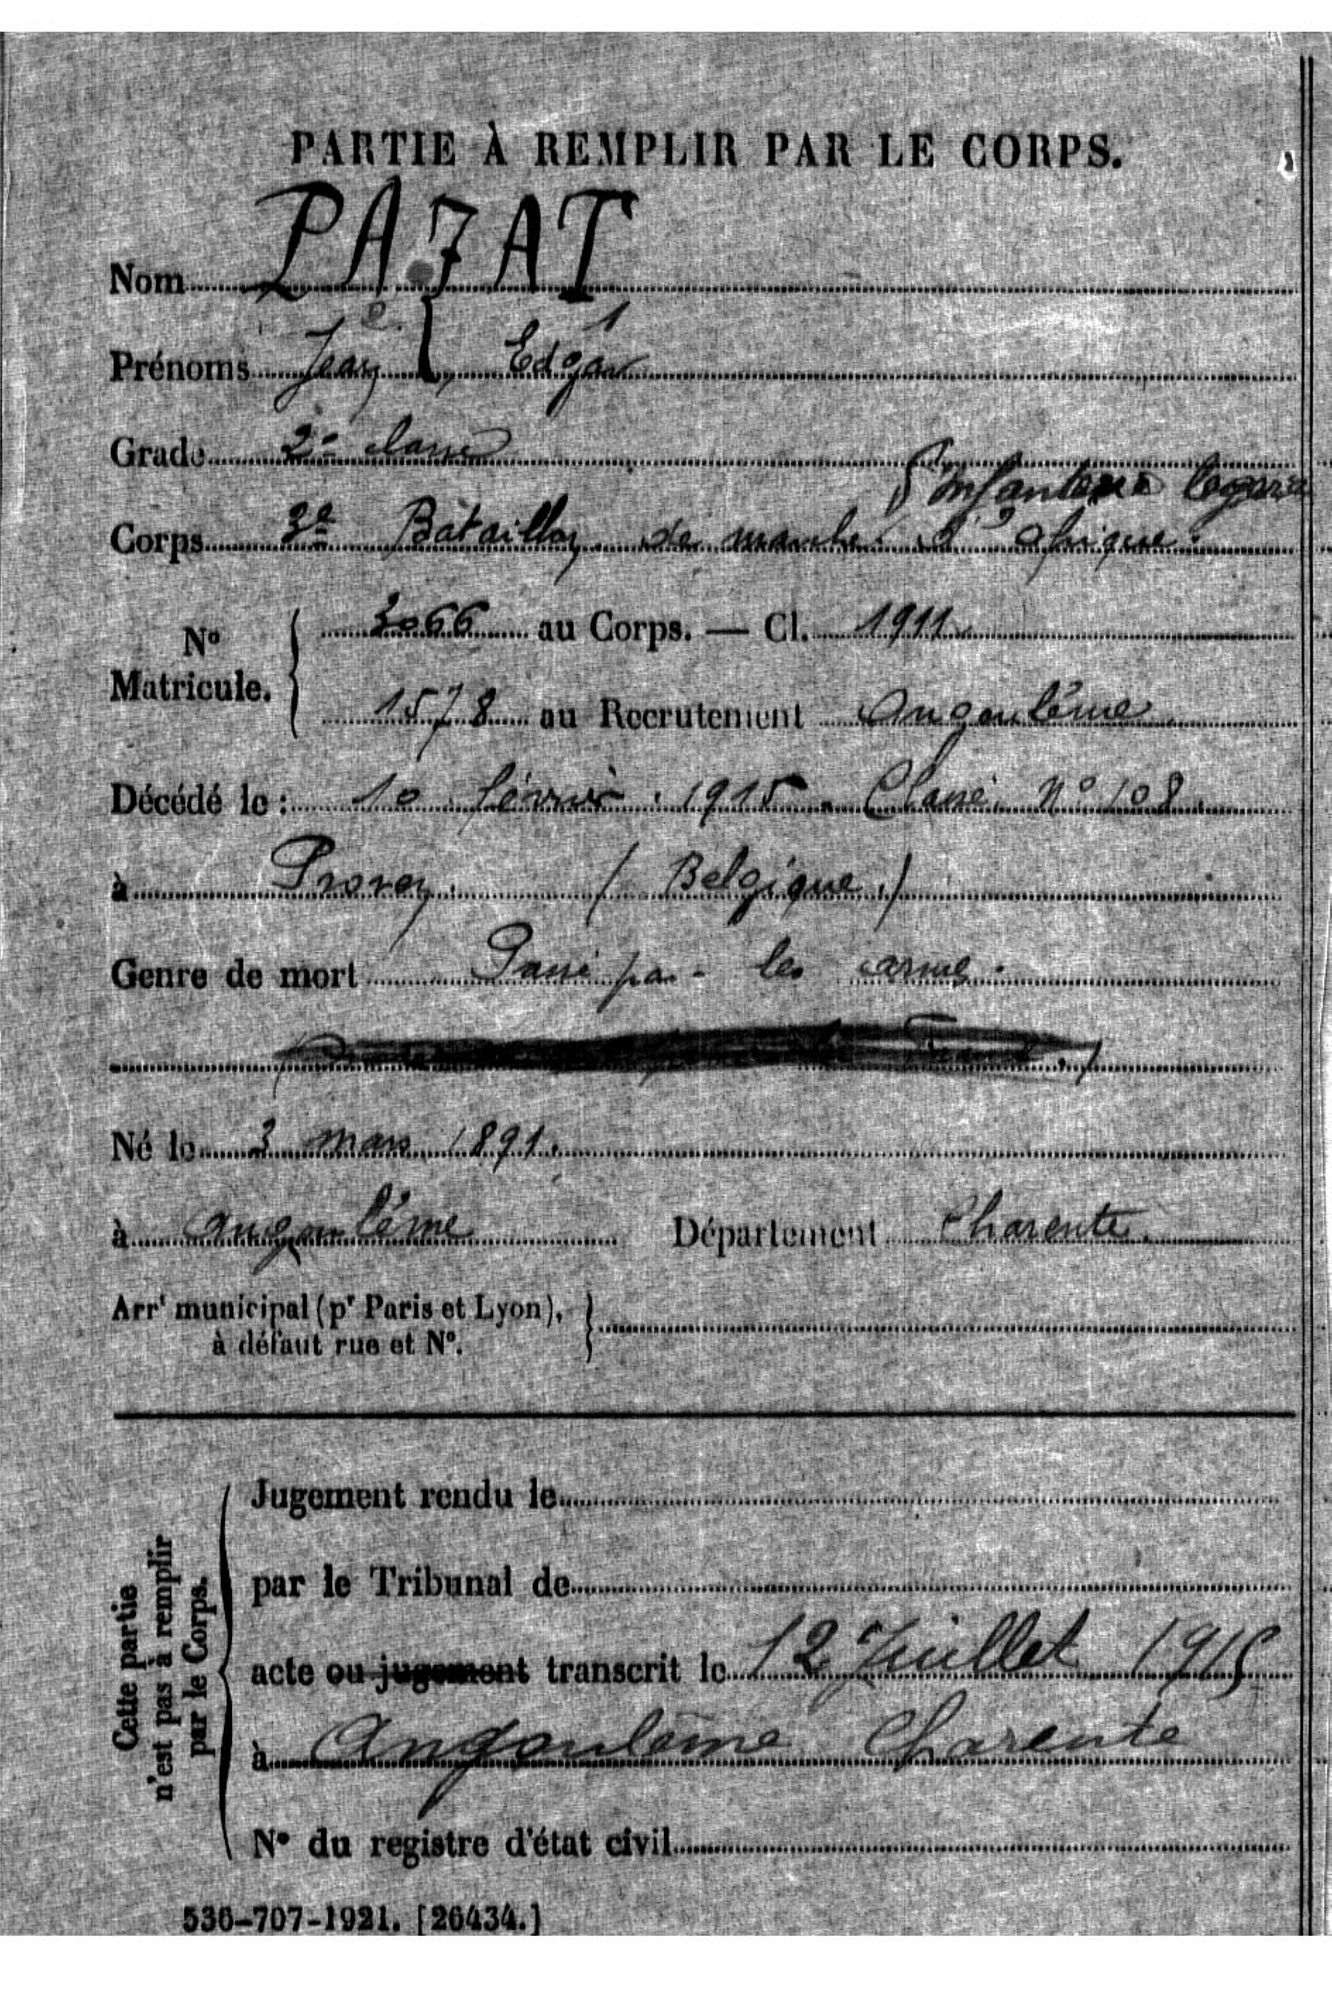 PARTIE À REMPLIR PAR LE CORPS.
Nom PAZAT
Prénoms Jean, Edgar
Grade 2e classe
d'Infanterie légère
Corps 3e Bataillon de marche d'Afrique.
N° Matricule. 3066 au Corps. — Cl. 1911
1578 au Recrutement Angoulême
Décédé le : 10 février 1915. Classé N° 108.
à (Belgique)
Genre de mort Passé par les armes.
Né le 3 mars 1891.
à Angoulême Département Charente.
Arrt municipal (pr Paris et Lyon),
à défaut rue et N°.
Cette partie
n'est pas à remplir
par le Corps.
Jugement rendu le
par le Tribunal de
acte ou jugement transcrit le 12 Juillet 1915
à Angoulême Charente
N° du registre d'état civil
536-707-1921. [26434.]